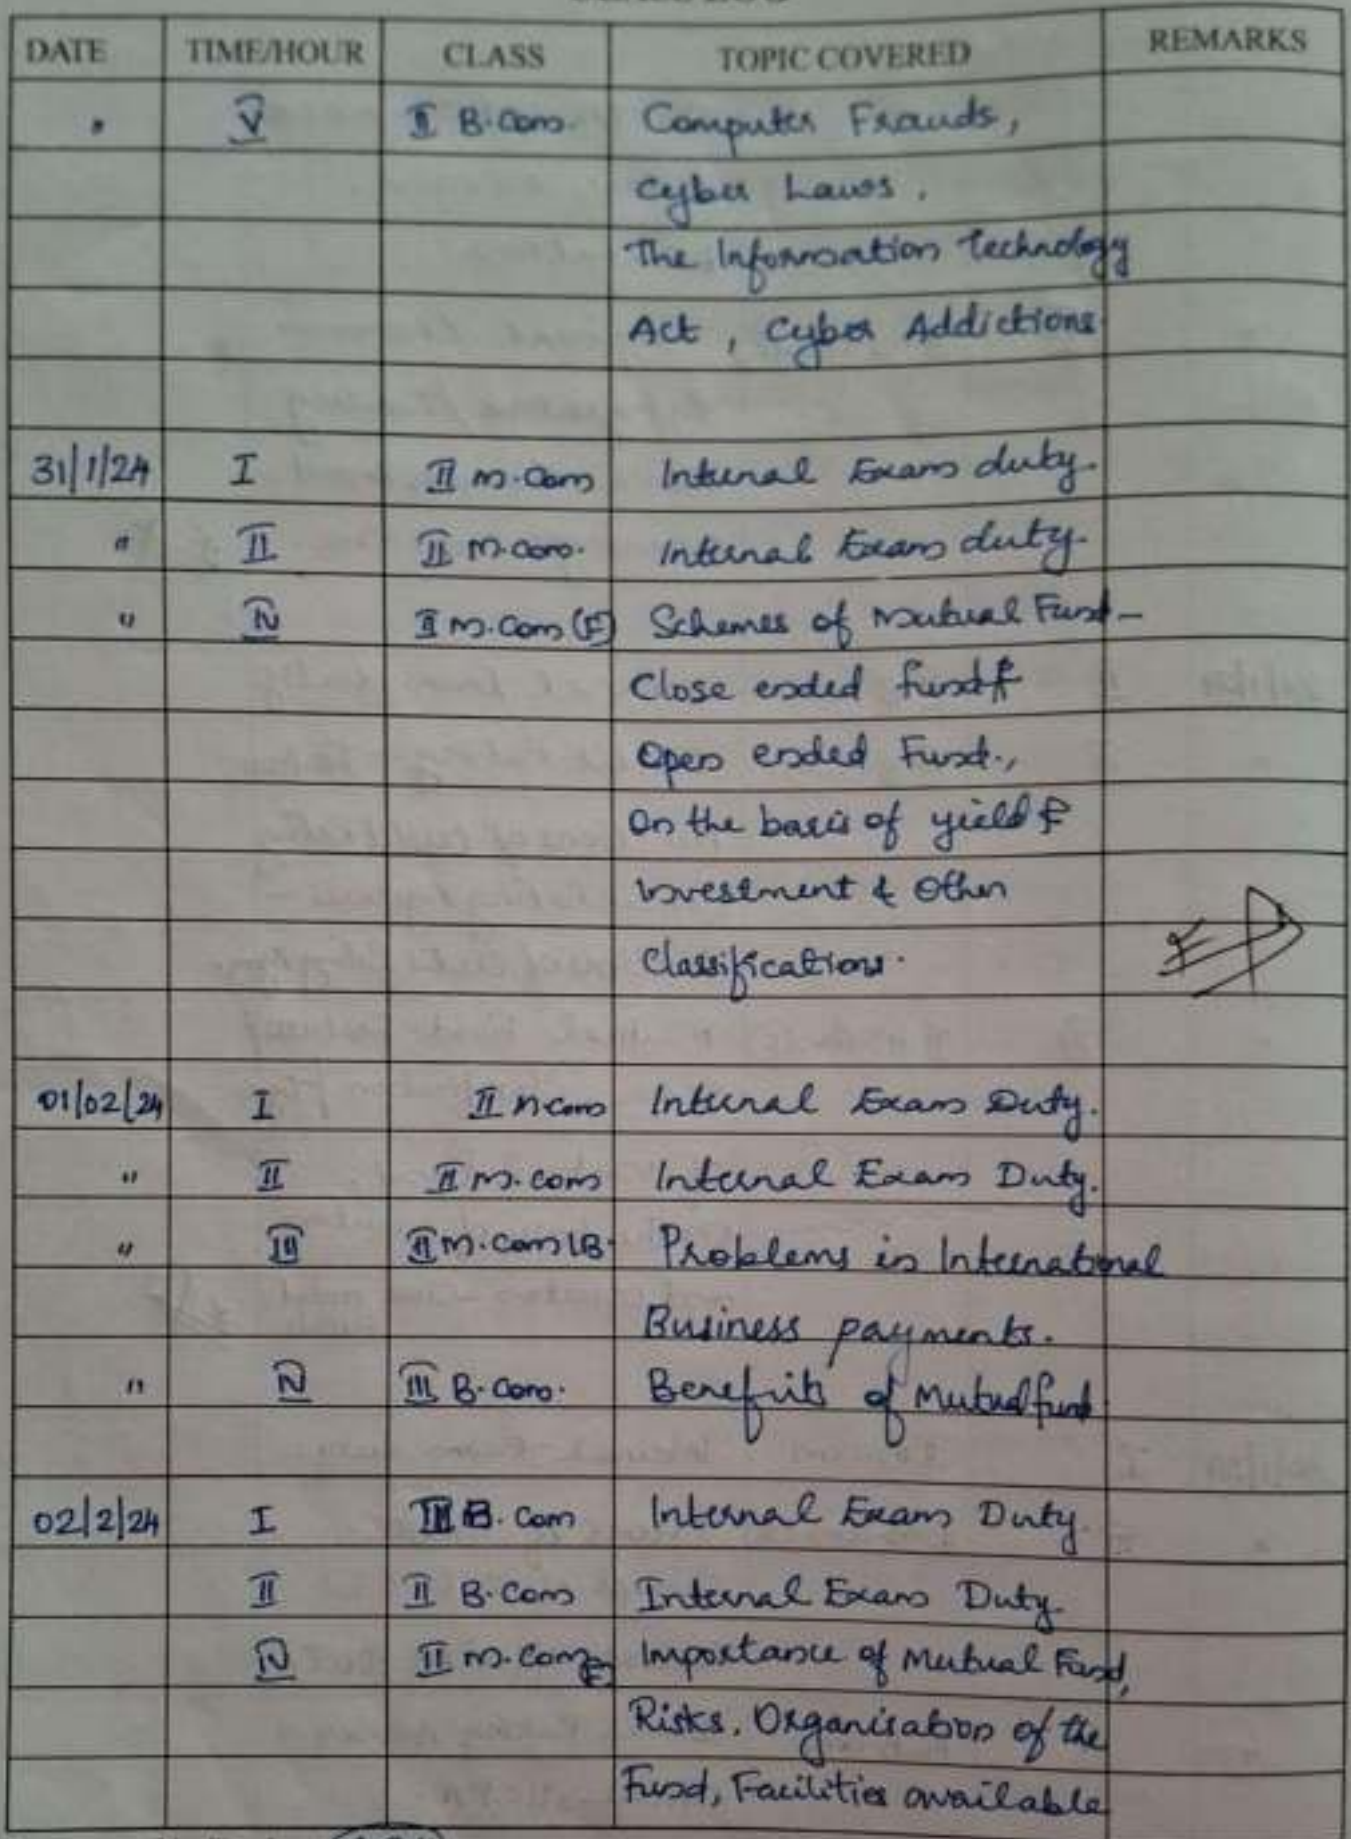 DATE TIME/HOUR CLASS TOPIC COVERED REMARKS
" V II B.Com. Computer Frauds,
Cyber Laws.
The Information Technology
Act, Cyber Addictions
31/1/24 I II M.Com Internal Exam duty.
" II II M.Com. Internal Exam duty.
" IV II M.Com (F) Schemes of Mutual Fund -
Close ended fund &
Open ended Fund.,
On the basis of yield &
Investment & Other
Classifications.
01/02/24 I II M.Com Internal Exam Duty.
" II II M.Com Internal Exam Duty.
" III II M.Com (B Problems in International
Business payments.
" IV III B.Com. Benefits of Mutual fund
02/2/24 I III B.Com Internal Exam Duty.
II II B.Com Internal Exam Duty.
IV II M.Com F Importance of Mutual Fund,
Risks, Organisation of the
Fund, Facilities available